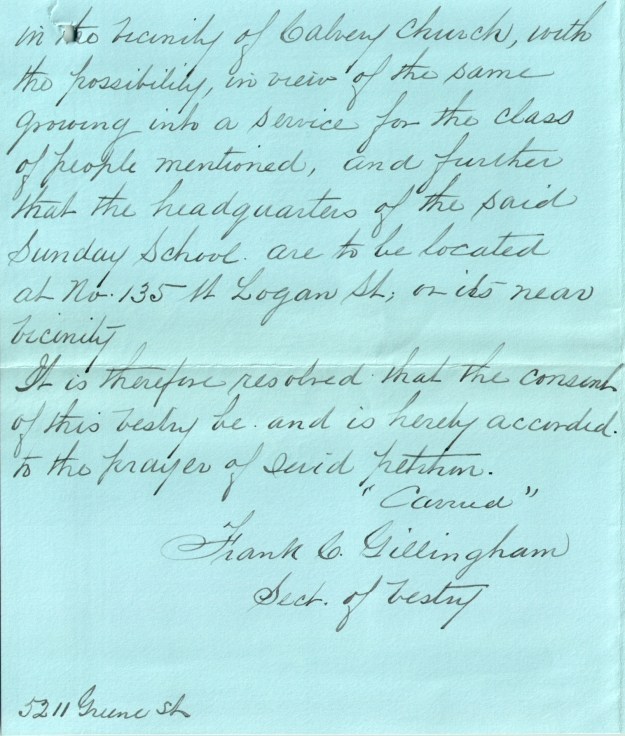 in the vicinity of Calvery Church, with
the possibility, in view of the same
growing into a service for the class
of people mentioned, and further
that the headquarters of the said
Sunday School. are to be located
at No. 135 W Logan St; or its near
vicinity
It is therefore resolved that the consent
of this vestry be. and is hereby accorded.
to the prayer of said petition.
"Carried"
Frank C. Gillingham
Sect. of Vestry
5211 Greene St